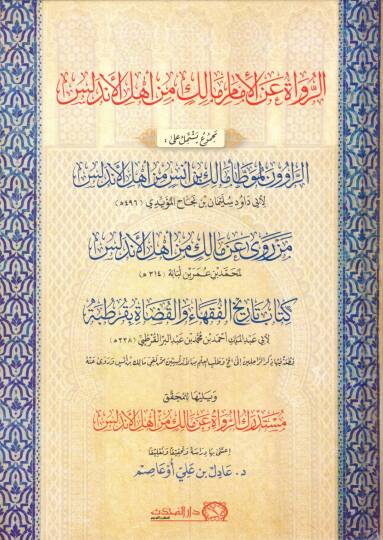 الرُّوَاةُ عَنِ الإِمَامِ مَالِكٍ مِنْ أَهْلِ الأَنْدَلُسِ
مَجْمُوعٌ يَشْتَمِلُ عَلَى :
الرَّاوُونَ لِمُوَطَّأِ مَالِكِ بْنِ أَنَسٍ مِنْ أَهْلِ الأَنْدَلُسِ
لِأَبِي دَاوُدَ سُلَيْمَانَ بْنِ نَجَاحٍ الْمُؤَيَّدِيِّ (٤٩٦ه)
مَنْ رَوَى عَنْ مَالِكٍ مِنْ أَهْلِ الأَنْدَلُسِ
لِمُحَمَّدِ بْنِ عُمَرَ بْنِ لُبَابَةَ (٣١٤ه)
كِتَابُ تَارِيخِ الْفُقَهَاءِ وَالْقُضَاةِ بِقُرْطُبَةَ
لِأَبِي عَبْدِ الْمَلِكِ أَحْمَدَ بْنِ مُحَمَّدِ بْنِ عَبْدِ الْبَرِّ الْقُرْطُبِيِّ (٣٣٨ه)
وَيَلِيهَا لِلْمُحَقِّقِ
مُسْتَدْرَكُ الرُّوَاةِ عَنْ مَالِكٍ مِنْ أَهْلِ الأَنْدَلُسِ
اعْتَنَى بِهَا دِرَاسَةً وَتَحْقِيقًا وَتَعْلِيقًا
د. عَادِل بْن عَلِي أَوْعَاصِم
دار المحدث